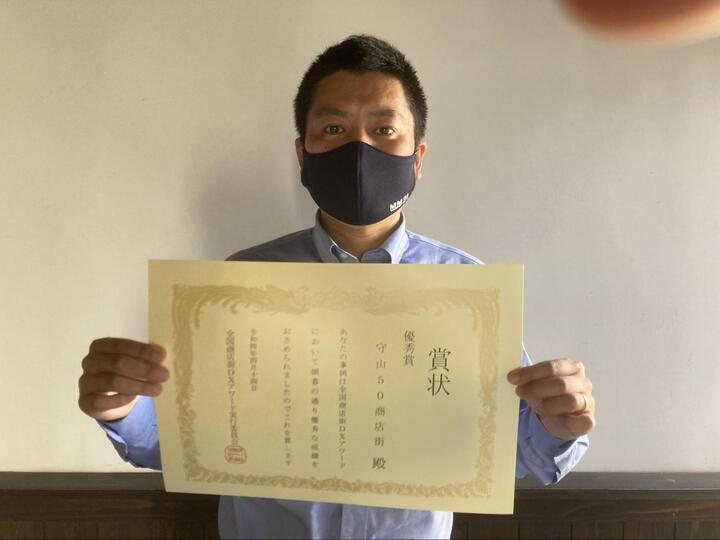 賞状
優秀賞
守山50商店街 殿
あなたの事例は全国商店街DXアワード
において頭書の通り優秀な成績を
おさめられましたのでこれを賞します
令和四年四月十四日
全国商店街DXアワード実行委員会